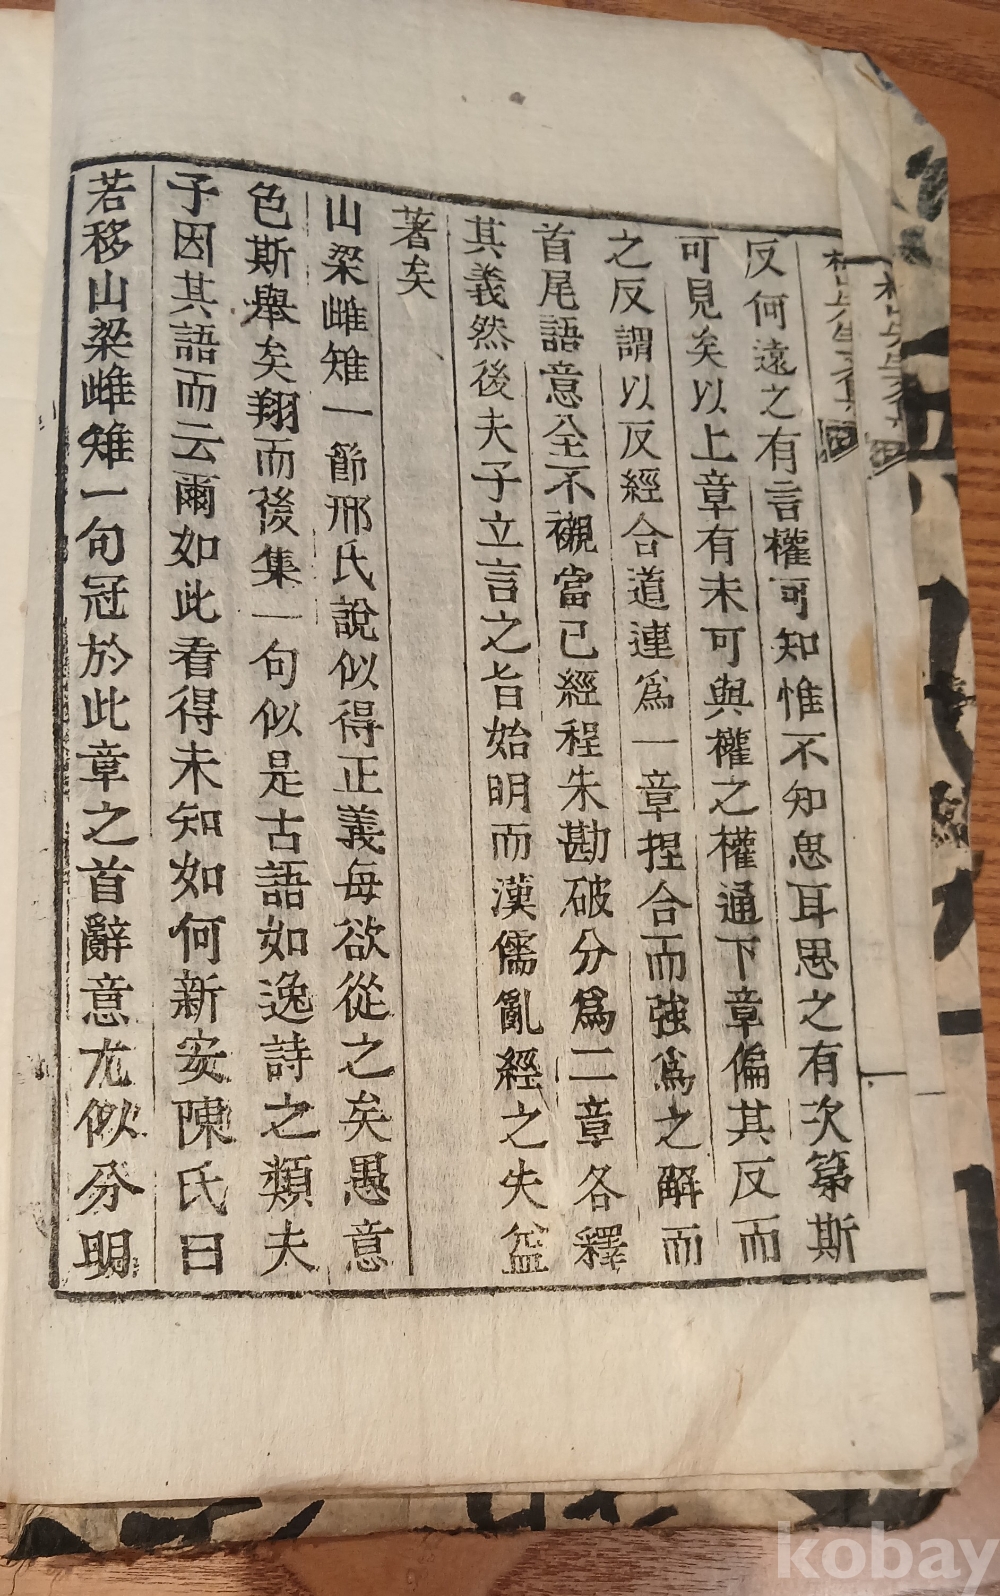 反何遠之有言權可知惟不知思耳思之有次第斯
可見矣以上章有未可與權之權通下章偏其反而
之反謂以反經合道連爲一章捏合而強爲之解而
首尾語意全不襯當已經程朱勘破分爲二章各釋
其義然後夫子立言之旨始明而漢儒亂經之失益
著矣
山梁雌雉一節邢氏說似得正義每欲從之矣愚意
色斯舉矣翔而後集一句似是古語如逸詩之類夫
子因其語而云爾如此看得未知如何新安陳氏曰
若移山梁雌雉一句冠於此章之首辭意尤似分明
kobay